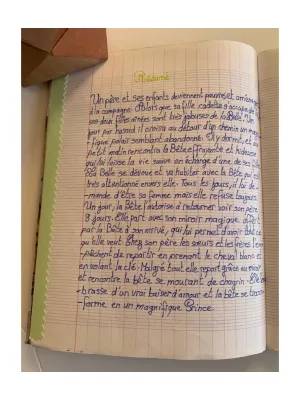 Résumé
Un père et ses enfants deviennent pauvres et
à la campagne. Alors que sa fille cadette s'occupe de
ses deux filles aînées sont très jalouses de la Belle. Un
jour par hasard il arriva au détour d'un chemin un mag-
fique palais semblant abandonné. Il y dormit, et au
petit matin rencontra la Bête effrayante et hideuse
qui lui laisse la vie sauve en échange d'une de ses
La Belle se dévoue et va habiter avec la Bête qui est
très attentionné envers elle. Tous les jours, il lui de-
-mande d'être sa femme mais elle refuse toujours
Un jour, la Bête l'autorise à retourner voir son père
8 jours. Elle part avec son miroir magique
par la Bête à son arrivé, qui lui permet d'avoir tout ce
qu'elle veut. Chez son père les sœurs et les frères l'em-
-pêchent de repartir en prenant le cheval blanc et
en volant la clé. Malgré tout elle repart grâce au miroir
et rencontre la bête se mourant de chagrin. Elle
-brasse d'un vrai baiser d'amour et la bête se trans
-forme en un magnifique Prince